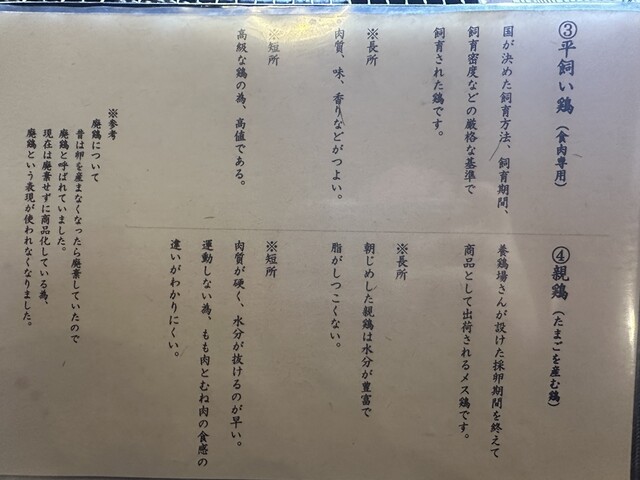 ③平飼い鶏（食肉専用）
国が決めた飼育方法、飼育期間、
飼育密度などの厳格な基準で
飼育された鶏です。
※長所
肉質、味、香りなどがつよい。
※短所
高級な鶏の為、高値である。
④親鶏（たまごを産む鶏）
養鶏場さんが設けた採卵期間を終えて
商品として出荷されるメス鶏です。
※長所
朝じめした親鶏は水分が豊富で
脂がしつこくない。
※短所
肉質が硬く、水分が抜けるのが早い。
運動しない為、もも肉とむね肉の食感の
違いがわかりにくい。
※参考
廃鶏について
昔は卵を産まなくなったら廃棄していたので
廃鶏と呼ばれていました。
現在は廃棄せずに商品化している為、
廃鶏という表現が使われなくなりました。